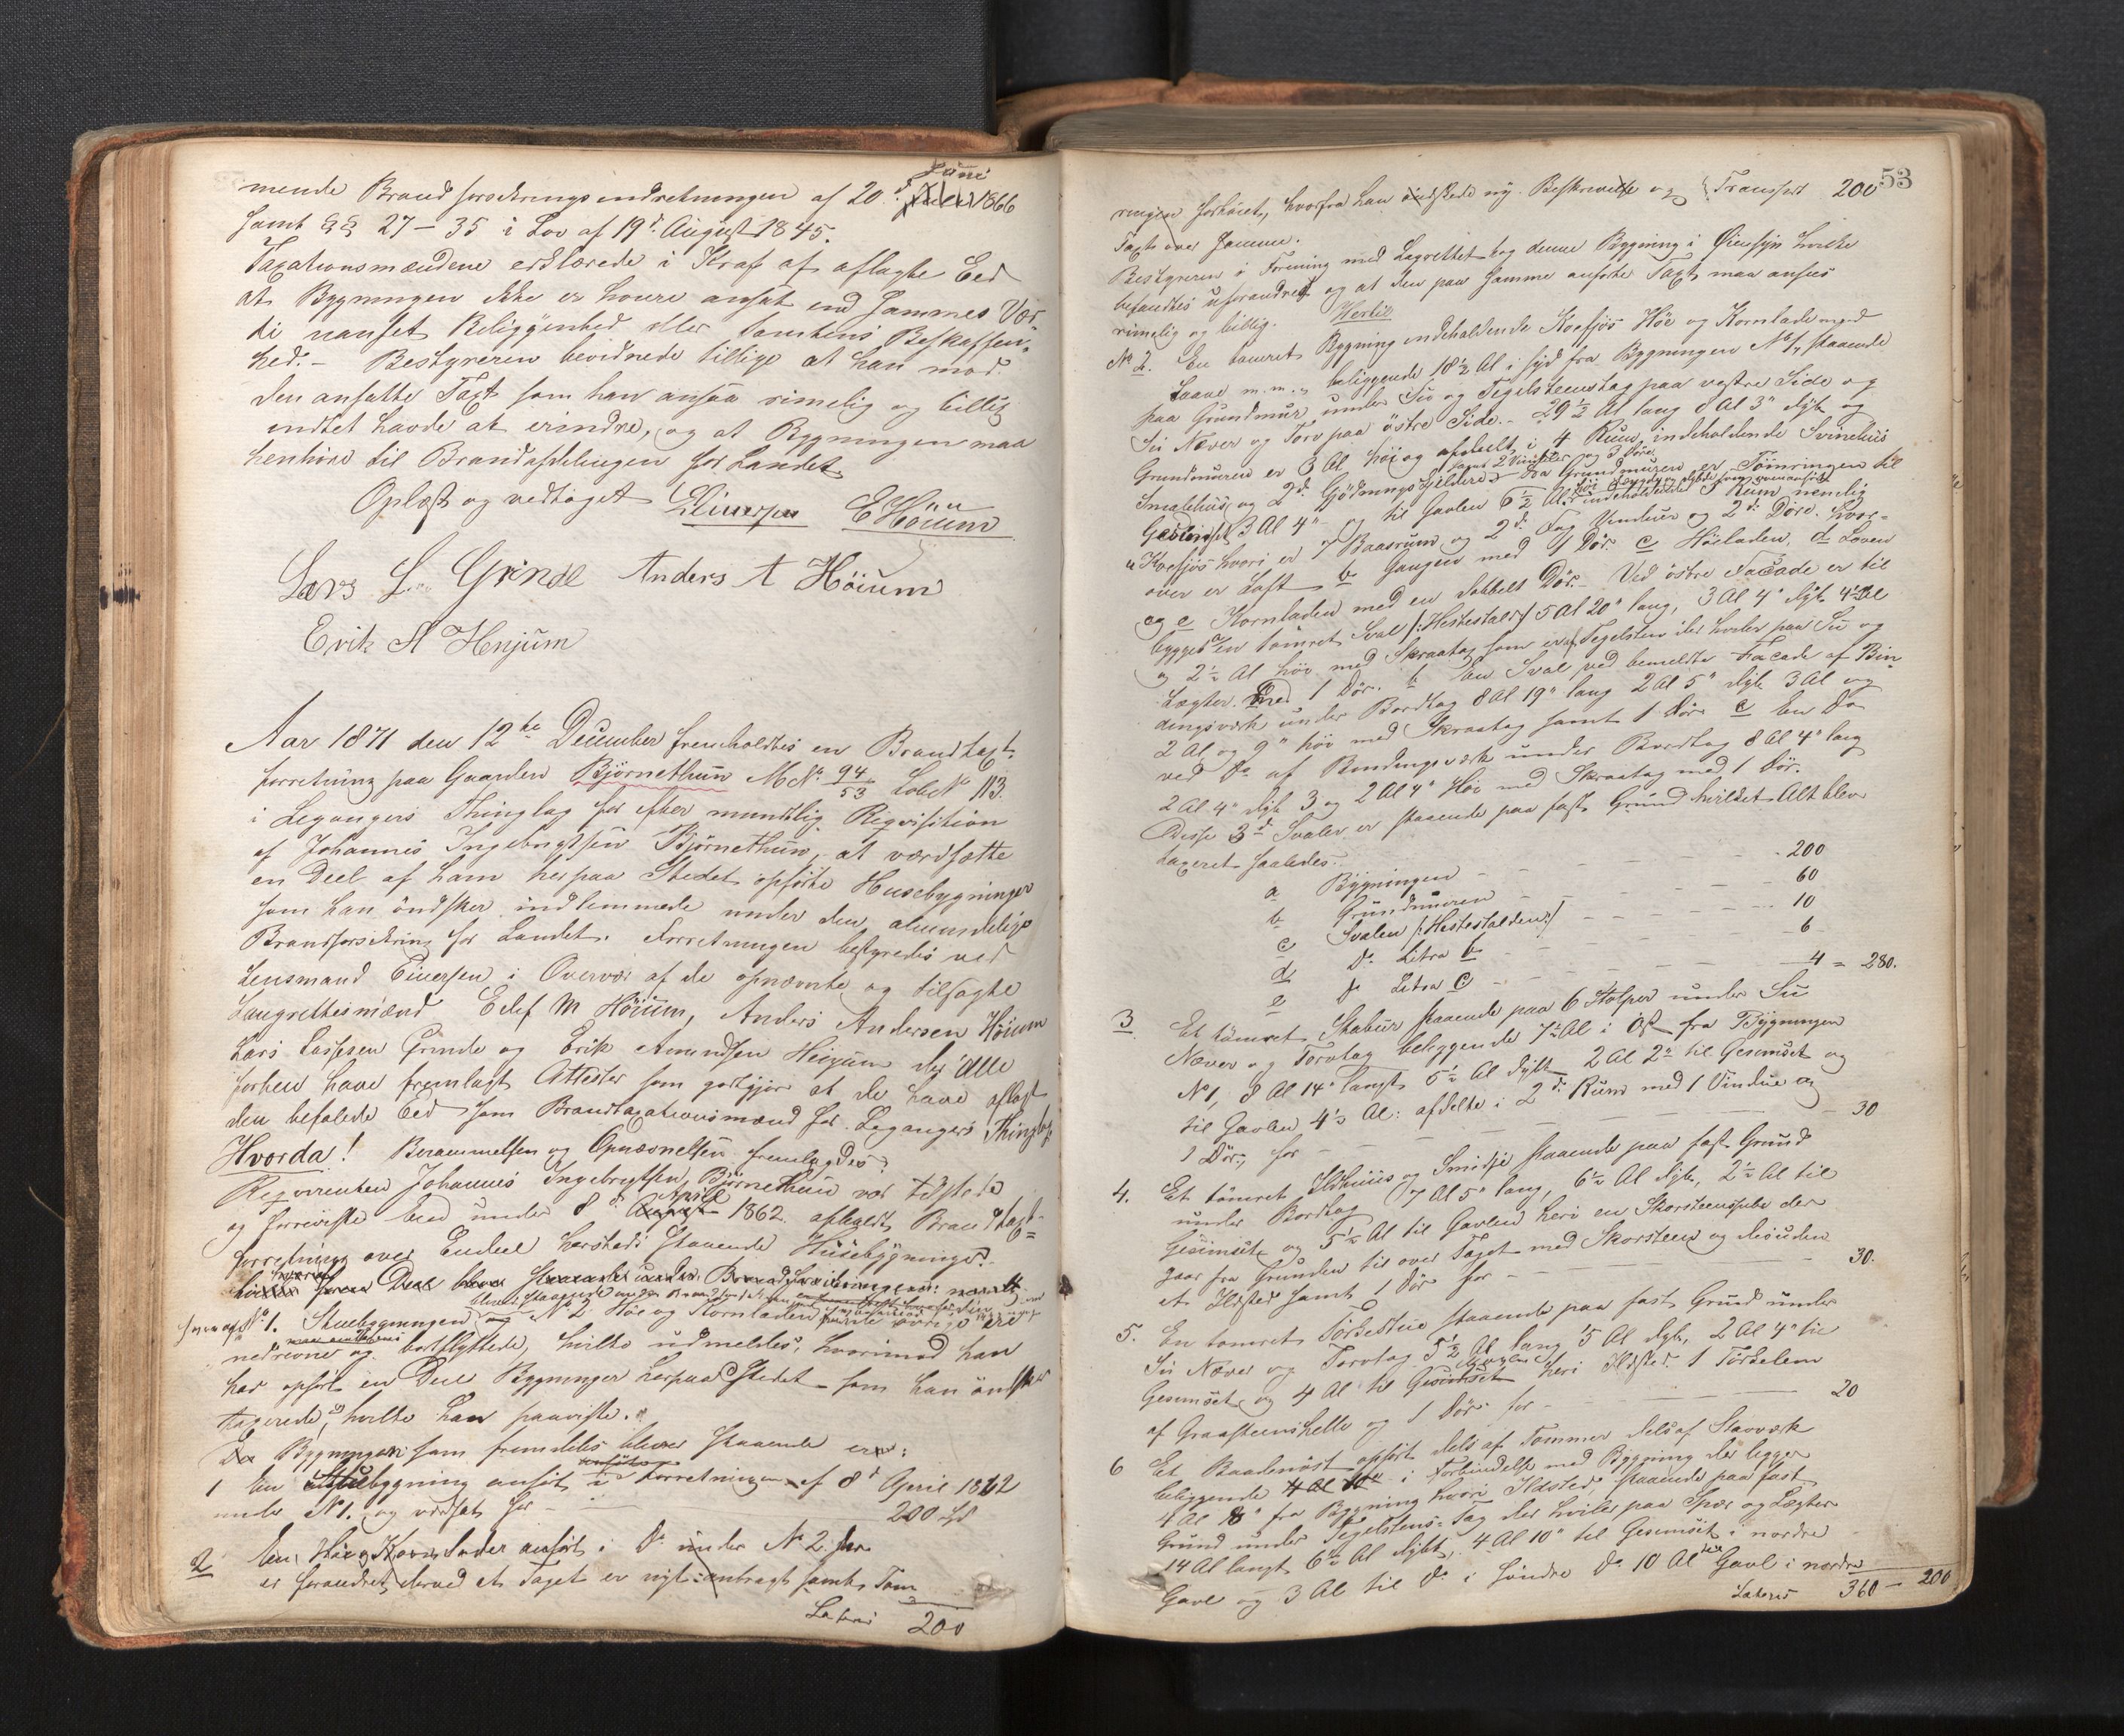 mende Brandforsikringsindretningen af 20d Juni 1866
samt §§ 27-35 i Lov af 19d August 1845.
Taxationsmændene erklærede i Kraf af aflagte Eed
at Bygningen ikke er høiere ansat end sammes Vær-
di uanset Beliggenhed eller Tomtens Beskaffen-
hed. - Bestyreren bevidnede tillige at han mod
den ansatte Taxt som han ansaa rimelig og billig
indtet havde at erindre, og at Bygningen maa
henhøre til Brandafdelingen for Landet.
Oplæst og vedtaget Eiversen E Höium
Lars L. Grinde Anders A Höium
Erik A Henjum
Aar 1871 den 12te December fremholdtes en Brandtaxt-
forretning paa Gaarden Björnethun MNo 94/53 LobeNo 113.
i Leganger Thinglag for efter mundtlig Reqvisition
af Johannes Ingebrigtsen Björnethun, at værdsætte
en Deel af ham her paa Stedet opførte Husebygninger
som han öndsker indlemmede under den almindelige
Brandforsikring for Landet. Forretningen bestyredes ved
Lensmand Eiversen i Overvær af de opnævnte og tilsagte
Laugrettesmænd Edlef M Höium, Anders Andersen Höium
Lars Larssen Grinde og Erik Amundsen Henjum der alle
forhen have fremlagt Attester som godtgjør at de have aflagt
den befalede Eed som Brandtaxationsmænd for Leganger Thinglag
Hvorda! Berammelsen og Opnævnelsen fremlagdes.
Reqvirenten Johannes Ingebrigtsen Björnethun var tilstede
og foreviste den under 8d April 1862 afholdte Brandtaxt-
forretning over Endeel herstedes staaende Husebygninger.
No 1. Stuebygningen og No 2 Höe og Kornladen
nedrevne og bortflyttede, hvilke udmeldes, hvorimod han
har opført en Deel Bygninger her paa Stedet som han öndsker
taxerede, hvilke han paaviste.
De Bygninger som fremdeles bliver staaende er:
1 En Stuebygning anført i Forretningen af 8d April 1862
under No 1. og værdsat for - 200 Spd
2 En Höe og Kornlader anført i Do under No 2. har
er forandret, derved at Taget er nyt anbragt samt Töm
Lateris 200
53
ringen forhøiet, hvorfra han öndskede ny Beskrivelse og Transport 200
Taxt over samme.
Bestyreren i Forening med Lagrettet tog denne Bygning i Øiensyn hvilke
befandtes uforandret og at den paa samme anførte Taxt maa ansees
rimelig og billig. Hertil
No 2. En tømret Bygning indeholdende Koefjøs Höe og Kornlade med
Laave m.m., beliggende 18 1/2 Al i syd fra Bygningen No 1, staaende
paa Grundmur under Su og Tegelsteenstag paa vestre Side og
Su Næver og Torv paa østre Side. - 29 1/2 Al lang 8 Al 3" dyb og
Grundmuren er 3 Al høi og afdeelt i 4 Rum indeholdende Svinehuus
Smalehuus og 2d Gjødningskjeldere. Fra Grundmuren er Tømringen til
Gesimset 3 Al 4" og til Gavlen 6 1/2 Al indeholdende 5 Rum nemlig
a Koefjøs hvori er 7 Baasrum og 2d Fag Vinduer og 2d Døre. hvor-
over er Loft b Gangen med 1 Dør. c Höeladen, d Loven
og e Kornladen med en dobbelt Dør. Ved østre Facade er til
bygget a en tømret Sval /:Hestestald:/ 5 Al 20" lang, 3 Al 4" dyb 4 Al
og 2 1/2 Al høi med Skraatag som er af Tegelsten der hviler paa Su og
Lægter med 1 Dør. b En Sval ved bemeldte Facade af Bin
dingsværk under Bordtag 8 Al 19" lang 2 Al 5" dyb 3 Al og
2 Al og 9" høi med Skraatag samt 1 Dør c En Do
ved Do af Bindingsværk under Bordtag 8 Al 4" lang
2 Al 4" dyb 3 og 2 Al 4" Høi med Skraatag med 1 Dør.
Disse 3d Svaler er staaende paa fast Grund hvilket Alt blev
taxeret saaledes.
a Bygningen - 200
b Grundmuren - 60
c Svalen /:Hestestalden:/ - 10
d Do Litra b - 6
e Do Litra c - 4 = 280.
3 Et tømret Stabur staaende paa 6 Stolper under Su
Næver og Torvtag beliggende 7 1/2 Al i Øst fra Bygningen
No 1, 8 Al 14" langt 5 1/2 Al dybt 2 Al 2" til Gesimset og
til Gavlen 4 1/2 Al: afdelte i 2d Rum med 1 Vindue og
1 Dør, for - 30
4. Et tømret Ildhuus og Smidje staaende paa fast Grund
under Bordtag 7 Al 5" lang, 6 1/2 Al dyb, 2 1/2 Al til
Gesimset og 5 1/2 Al til Gavlen heri en Skorsteenspibe der
gaar fra Grunden til over Taget med Skorsteen og desuden
et Ildsted samt 1 Dør for - 30.
5. En tømret Tørkestue staaende paa fast Grund under
Su Næver og Torvtag 5 1/2 Al lang 5 Al dyb, 2 Al 4" til
Gesimset og 4 Al til Gavlen heri Ildsted 1 Tørkelem
af Graasteenshelle og 1 Dør. for - 20
6 Et Baadenøst opført dels af Tømmer dels af Stavværk
beliggende i Forbindelse med Bygning der ligger
4 Al 8" fra Bygning hvori Ildsted, staaende paa fast
Grund under Tegelsteens-Tag der hviler paa Spær og Lægter
14 Al langt 6 1/2 Al dybt, 4 Al 10" til Gesimset i nordre
Gavl og 3 Al til Do i søndre Do 10 Al til Gavl i nordre
Lateris 360 - 200